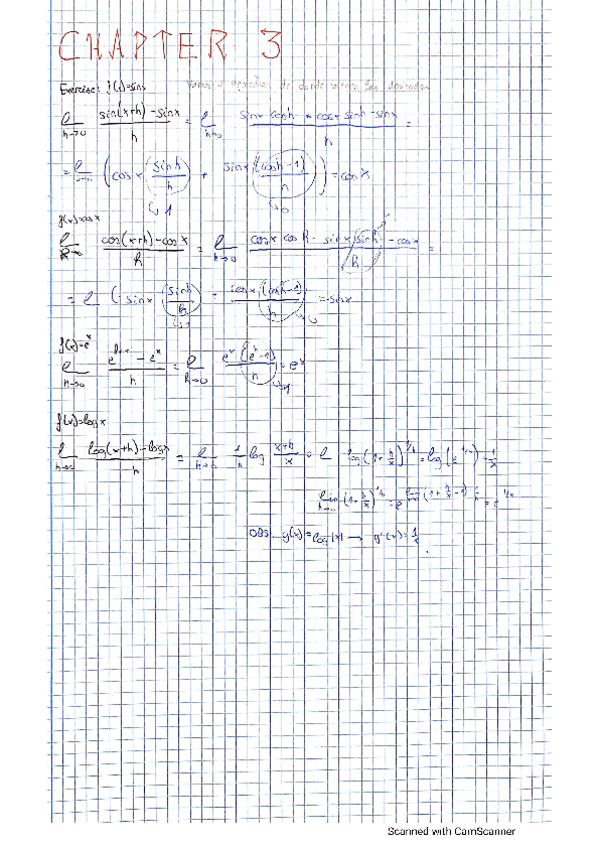 CHAPTER 3
Exercise: f(x)=sinx de donde
l h→0 sin(x+h)-sinx / h = l h→0 sinx cosh + cosx sinh - sinx / h =
= l (cosx (sinh / h) + sinx (cosh-1) / h) = cosx
↳ 1 ↳ 0
f(x)=cosx
l h→0 cos(x+h)-cosx / h = l h→0 cosx cosh - sinx sinh - cosx / h =
= l (-sinx (sinh / h) cosx (cosh-1) / h) = -sinx
f(x)=e^x
l h→0 e^(h+x) - e^x / h = l h→0 e^x (e^h-1) / h = e^x
↳ 1
f(x)=logx
l h→0 log(x+h)-logx / h = l h→0 1/h log x+h / x = l log(1+h/x)^(1/h) = log(e^(1/x)) = 1/x
lim h→0 (1+h/x)^(1/h) = e^(lim (1+h/x-1) 1/h) = e^(1/x)
OBS. g(x)=log|x| → g'(x)=1/x
Scanned with CamScanner